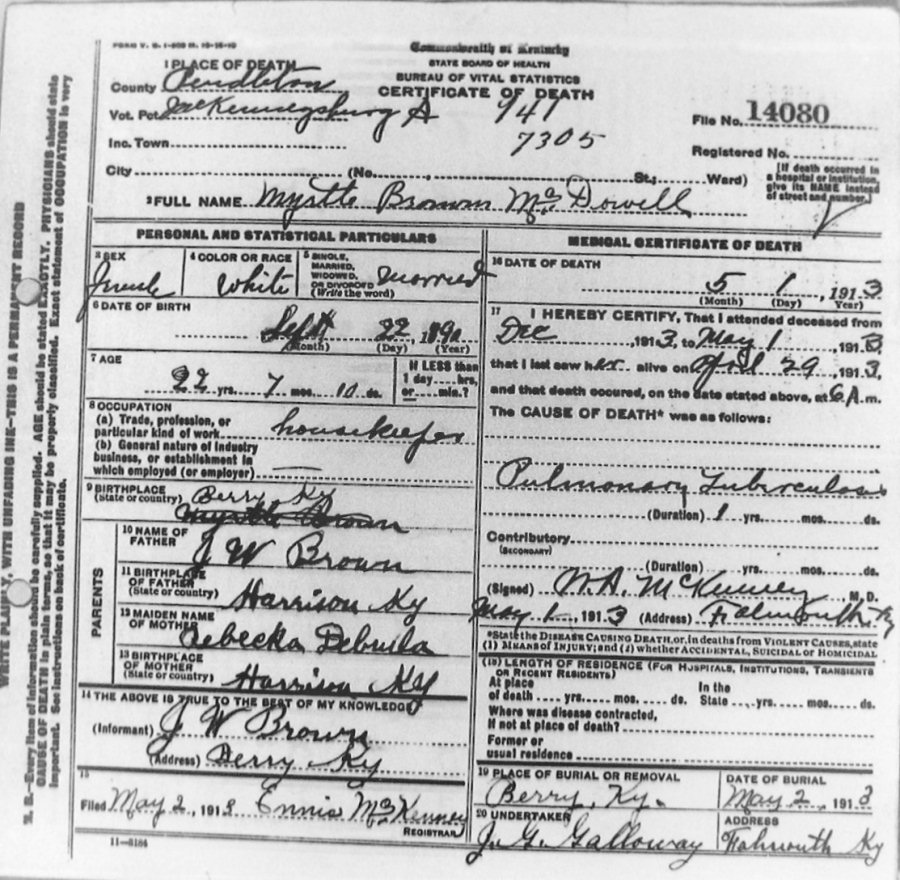 FORM V. S. 1-
Commonwealth of Kentucky
STATE BOARD OF HEALTH
BUREAU OF VITAL STATISTICS
CERTIFICATE OF DEATH
1 PLACE OF DEATH
County Pendleton
Vot. Pct. McKenneysburg A 941
7305
File No. 14080
Inc. Town
Registered No.
City (No. , St.; Ward)
[If death occurred in
a hospital or institution,
give its NAME instead
of street and number.]
2 FULL NAME Myrtle Brown McDowell
PERSONAL AND STATISTICAL PARTICULARS
3 SEX
Female
4 COLOR OR RACE
White
5 SINGLE,
MARRIED,
WIDOWED,
OR DIVORCED
(Write the word)
married
6 DATE OF BIRTH
Sept 22, 1890
(Month) (Day) (Year)
7 AGE
22 yrs. 7 mos. 10 ds.
If LESS than
1 day hrs.
or min.?
8 OCCUPATION
(a) Trade, profession, or
particular kind of work housekeeper
(b) General nature of industry
business, or establishment in
which employed (or employer)
9 BIRTHPLACE
(State or country) Berry Ky
Myrtle Brown
PARENTS
10 NAME OF
FATHER J W Brown
11 BIRTHPLACE
OF FATHER
(State or country) Harrison Ky
12 MAIDEN NAME
OF MOTHER Rebecka
13 BIRTHPLACE
OF MOTHER
(State or country) Harrison Ky
14 THE ABOVE IS TRUE TO THE BEST OF MY KNOWLEDGE
(Informant) J W Brown
(Address) Berry Ky
15
Filed May 2, 1913 Ennis McKenney
REGISTRAR
11-5184
MEDICAL CERTIFICATE OF DEATH
16 DATE OF DEATH
5 1, 1913
(Month) (Day) Year)
17 I HEREBY CERTIFY, That I attended deceased from
Dec , 1913, to May 1, 1913
that I last saw her alive on April 29, 1913,
and that death occured, on the date stated above, at 6 A.m.
The CAUSE OF DEATH* was as follows:
Pulmonary Tuberculosis
(Duration) 1 yrs. mos. ds.
Contributory
(SECONDARY)
(Duration) yrs. mos. ds.
(Signed) W.A. McKenney M.D.
May 1, 1913 (Address) Falmouth Ky
*State the DISEASE CAUSING DEATH, or, in deaths from VIOLENT CAUSES, state
(1) MEANS OF INJURY; and (2) whether ACCIDENTAL, SUICIDAL or HOMICIDAL
(18) LENGTH OF RESIDENCE (FOR HOSPITALS, INSTITUTIONS, TRANSIENTS
OR RECENT RESIDENTS)
At place In the
of death yrs. mos. ds. State yrs. mos. ds.
Where was disease contracted,
If not at place of death?
Former or
usual residence
19 PLACE OF BURIAL OR REMOVAL
Berry, Ky.
DATE OF BURIAL
May 2, 1913
20 UNDERTAKER
J. G. Galloway
ADDRESS
Falmouth Ky
WRITE PLAINLY, WITH UNFADING INK—THIS IS A PERMANENT RECORD
N. B.—Every item of information should be carefully supplied. AGE should be stated EXACTLY. PHYSICIANS should state
CAUSE OF DEATH in plain terms, so that it may be properly classified. Exact statement of OCCUPATION is very
important. See instructions on back of certificate.